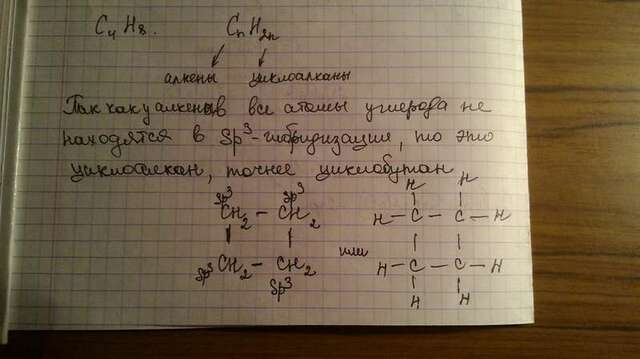 C₄H₈. CₙH₂ₙ
алкены циклоалканы
Так как у алкенов все атомы углерода не
находятся в Sp³-гибридизации, то это
циклоалкан, точнее циклобутан
Sp³ Sp³ H H
CH₂ — CH₂ H — C — C — H
или
Sp³ CH₂ — CH₂ H — C — C — H
Sp³ H H